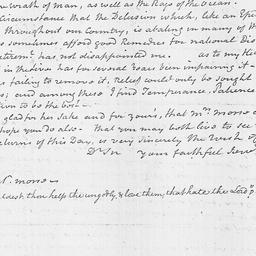 wrath of man, as well as the Rage of the Ocean.
Circumstance that the Delusion which, like an Epi
throughout our Country, is abating in many of th
as sometimes afford good Remedies for natural Dis
has not disappointed me. as to my He
in the Liver has for several Years been impairing it
failing to remove it, Relief could only be sought
and among these I find Temperance, Patience
to be the best
glad for her sake and for yours, that Mrs. Morse
hope you do also. That you may both live to see
Returns of this Day, is very sincerely the wish of
Dr. Sir your faithful Serv
Morse
thou help the ungodly & love them, that hate the Lord?